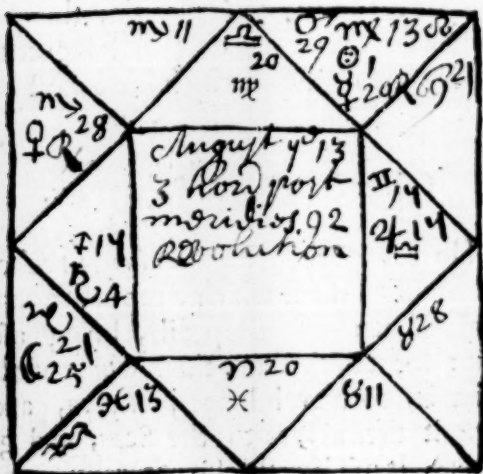 ♏ 11
♎ 20
♍
♂ 29
♍ 13 ♌
☉ 1
☿ 20 ℞
21
♏ 28
♀ ℞
August ye 13
3 hors post
meridies. 92
Revolution
♊ 14
♃ 14
♎
♐ 14
♄ 4
♑ 21
☾ 25
♉ 28
♓ 13
♒
♈ 20
♓
♉ 11